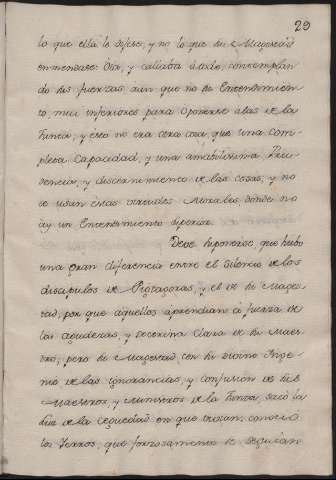 29
lo que ella le dixese, y no lo que su Magestad
enmendase. Oia, y callaba à todo, contemplan
do sus fuerzas aun que no su Entendimien
to, mui inferiores para oponerse alas de la
Junta, y esto no era otra cosa, que una Com
pleta Capacidad, y una amabilissima Pru
dencia, y discernimiento de las cosas, y no
se usan estas virtudes Morales donde no
ay un Entendimiento superior.
Deve suponerse que hubo
una gran diferencia entre el silencio de los
discipulos de Protagoras, y el de su Mages
tad, por que àquellos aprendian à fuerza de
las agudezas, y Doctrina Clara de su Maes
tro; pero su Magestad, con su Divino Inge
nio de las ignorancias, y confusion de sus
Maestros, y Ministros de la Junta, sacò la
luz de la ceguedad en que vivian, conociò
los Yerros, que forzosamente se seguian